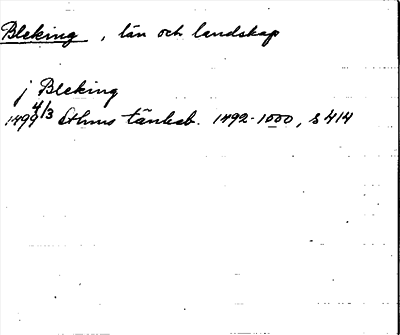 Bleking, län och landskap
j Bleking
1499 4/3 Sthms tänkeb. 1492-1500, s 414